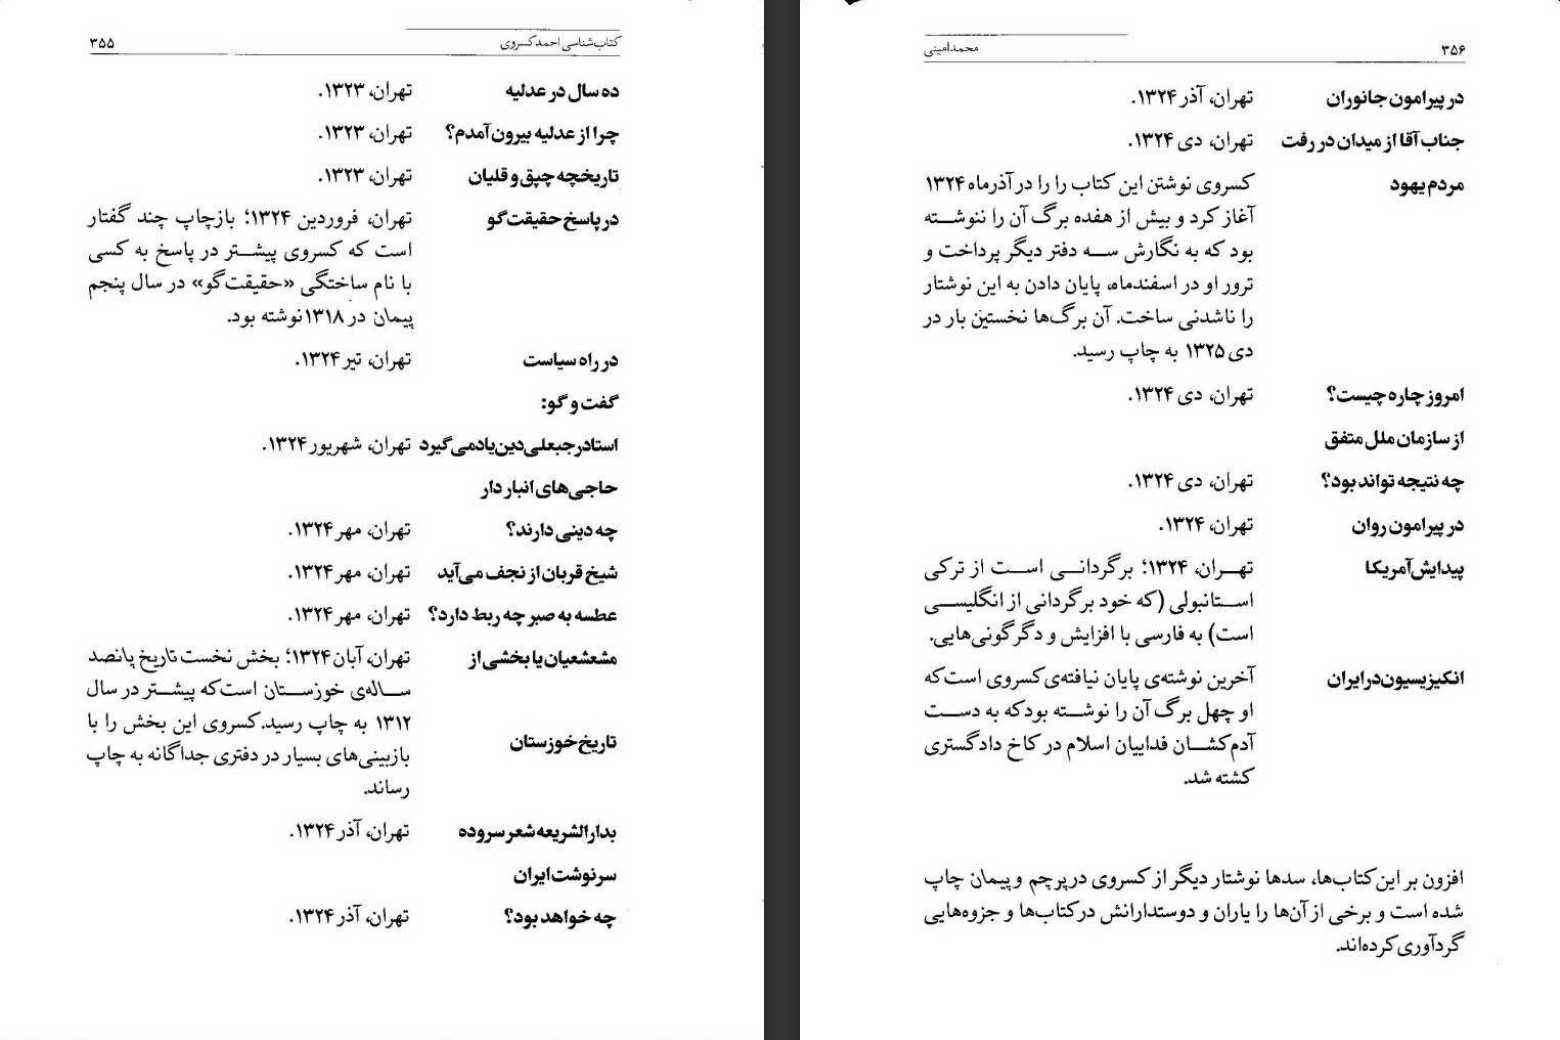 ۳۵۵ کتاب‌شناسی احمد کسروی
ده سال در عدلیه تهران، ۱۳۲۳.
چرا از عدلیه بیرون آمدم؟ تهران، ۱۳۲۳.
تاریخچه چپق و قلیان تهران، ۱۳۲۳.
در پاسخ حقیقت‌گو تهران، فروردین ۱۳۲۴؛ بازچاپ چند گفتار
است که کسروی پیشتر در پاسخ به کسی
با نام ساختگی «حقیقت‌گو» در سال پنجم
پیمان در ۱۳۱۸ نوشته بود.
در راه سیاست تهران، تیر ۱۳۲۴.
گفت و گو:
استاد رجبعلی دین یاد می‌گیرد تهران، شهریور ۱۳۲۴.
حاجی‌های انبار دار
چه دینی دارند؟ تهران، مهر ۱۳۲۴.
شیخ قربان از نجف می‌آید تهران، مهر ۱۳۲۴.
عطسه به صبر چه ربط دارد؟ تهران، مهر ۱۳۲۴.
مشعشعیان یا بخشی از تهران، آبان ۱۳۲۴؛ بخش نخست تاریخ پانصد
ساله‌ی خوزستان است که پیشتر در سال
۱۳۱۲ به چاپ رسید. کسروی این بخش را با
تاریخ خوزستان بازبینی‌های بسیار در دفتری جداگانه به چاپ
رساند.
بدارالشریعه شعر سروده تهران، آذر ۱۳۲۴.
سرنوشت ایران
چه خواهد بود؟ تهران، آذر ۱۳۲۴.
۳۵۶ محمد امینی
در پیرامون جانوران تهران، آذر ۱۳۲۴.
جناب آقا از میدان در رفت تهران، دی ۱۳۲۴.
مردم یهود کسروی نوشتن این کتاب را را در آذرماه ۱۳۲۴
آغاز کرد و بیش از هفده برگ آن را ننوشته
بود که به نگارش سه دفتر دیگر پرداخت و
ترور او در اسفندماه، پایان دادن به این نوشتار
را ناشدنی ساخت. آن برگ‌ها نخستین بار در
دی ۱۳۲۵ به چاپ رسید.
امروز چاره چیست؟ تهران، دی ۱۳۲۴.
از سازمان ملل متفق
چه نتیجه تواند بود؟ تهران، دی ۱۳۲۴.
در پیرامون روان تهران، ۱۳۲۴.
پیدایش آمریکا تهران، ۱۳۲۴؛ برگردانی است از ترکی
استانبولی (که خود برگردانی از انگلیسی
است) به فارسی با افزایش و دگرگونی‌هایی.
انکیزیسیون در ایران آخرین نوشته‌ی پایان نیافته‌ی کسروی است که
او چهل برگ آن را نوشته بود که به دست
آدم‌کشان فداییان اسلام در کاخ دادگستری
کشته شد.
افزون بر این کتاب‌ها، سدها نوشتار دیگر از کسروی در پرچم و پیمان چاپ
شده است و برخی از آن‌ها را یاران و دوستدارانش در کتاب‌ها و جزوه‌هایی
گردآوری کرده‌اند.